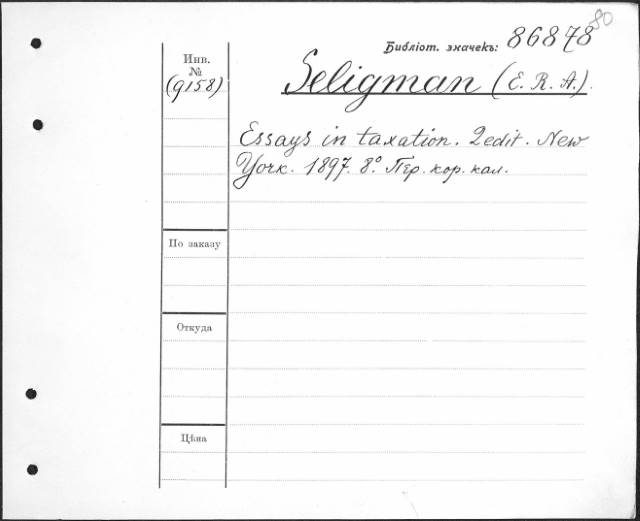 80
Библіот. значекъ: 86878
Инв.
№
(9158)
Seligman (E. R. A.).
Essays in taxation. 2 edit. New
York. 1897. 8º. Пер. кор. кал.
По заказу
Откуда
Цѣна